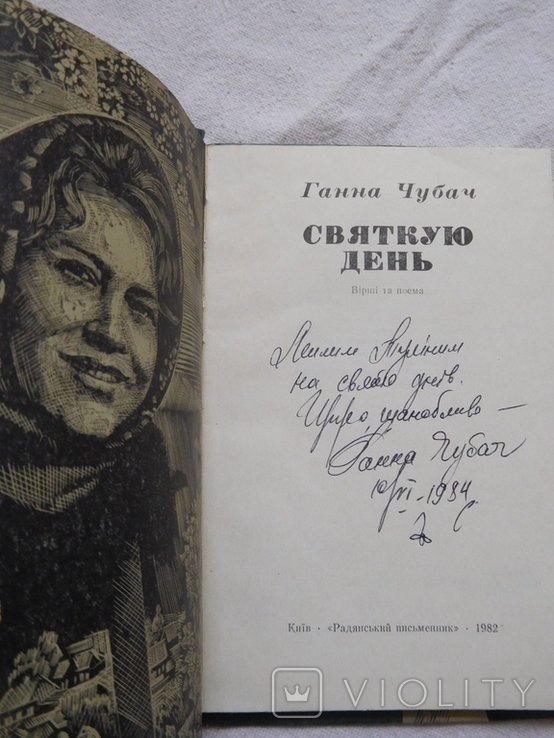 Ганна Чубач
СВЯТКУЮ
ДЕНЬ
Вірші та поема
Милим
на свято днів.
Щиро, шанобливо —
Ганна Чубач
VI-1984
Київ · «Радянський письменник» · 1982
VIOLITY